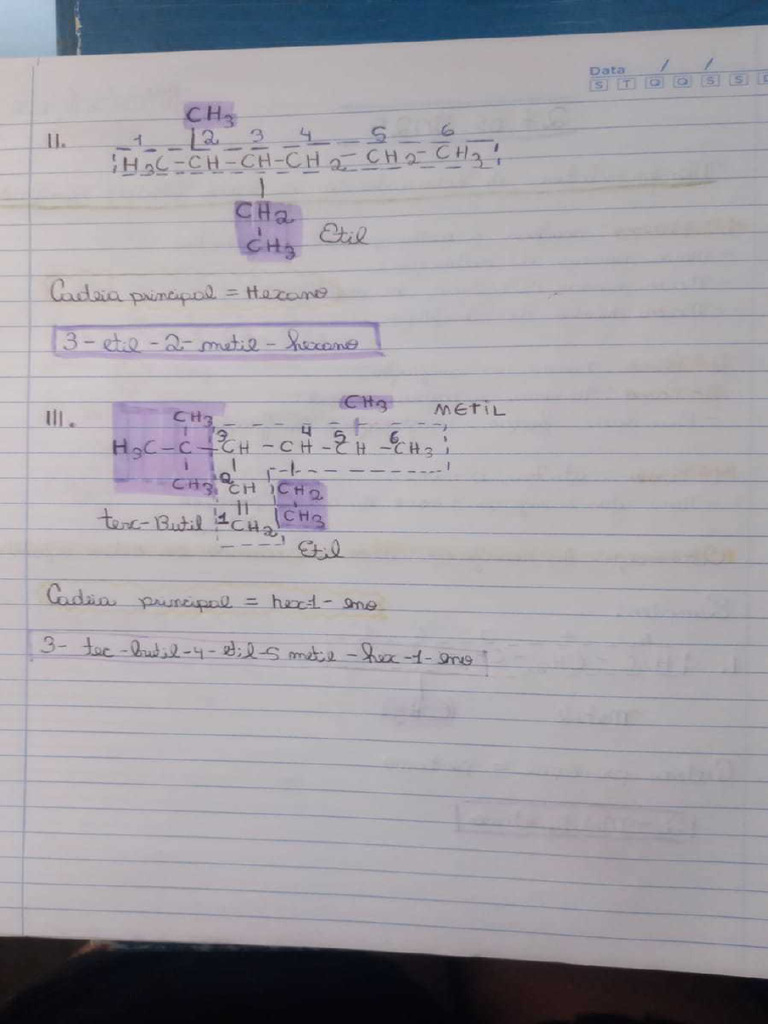 Data / /
S T Q Q S S D
CH3
II. 1 2 3 4 5 6
H3C-CH-CH-CH2-CH2-CH3
CH2
CH3 Etil
Cadeia principal = Hexano
3-etil-2-metil-hexano
CH3 METIL
III. CH3 3 4 5 6
H3C-C-CH-CH-CH-CH3
CH3 2 CH CH2
terc-Butil 1 CH2 CH3
Etil
Cadeia principal = hex-1-eno
3-tec-butil-4-etil-5 metil-hex-1-eno